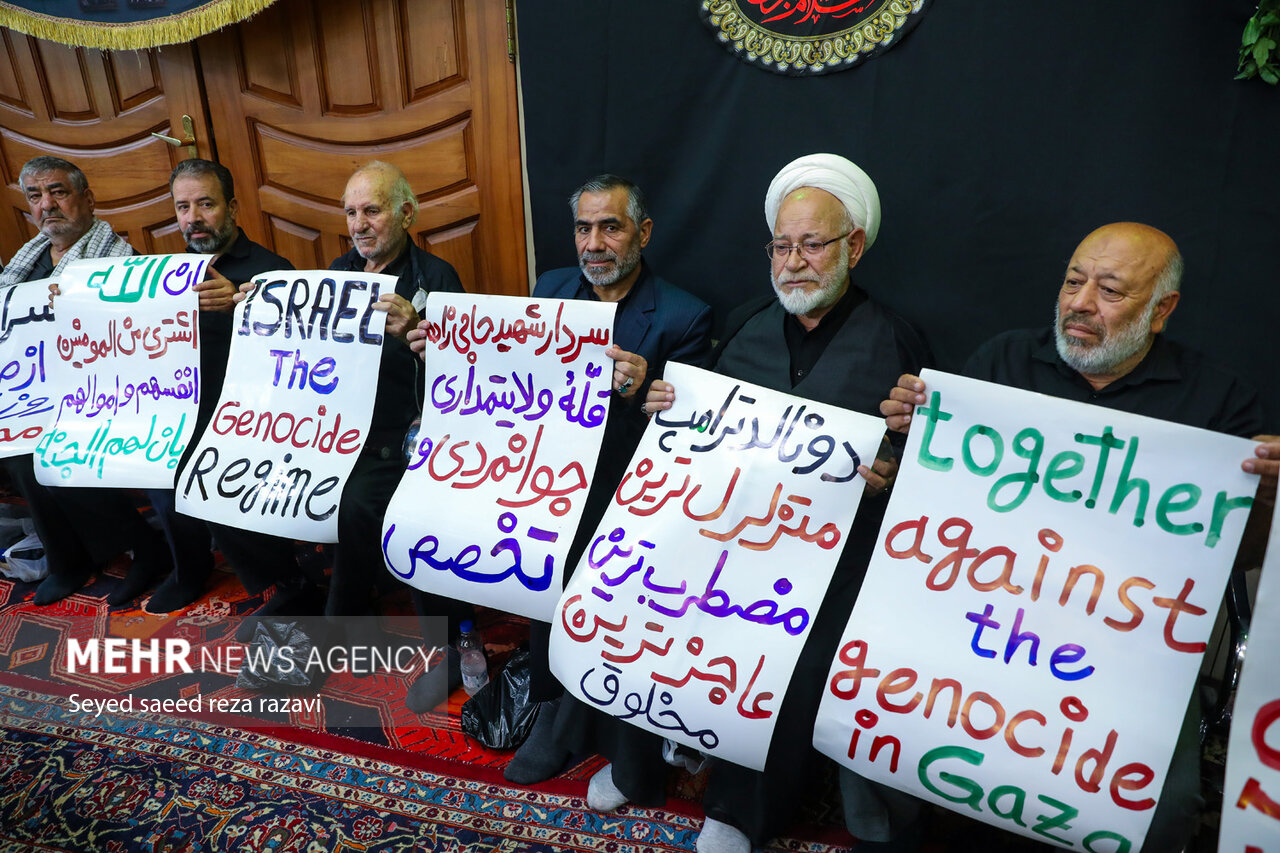 ان الله
اشتری من المومنین
انفسهم و اموالهم
بان لهم الجنة
ISRAEL
The
Genocide
Regime
سردار شهید حاجی‌زاده
قلهٔ ولایتمداری
جوانمردی و
تخصص
دونالد ترامپ
متزلزل ترین
مضطرب ترین
عاجز ترین
مخلوق
together
against
the
genocide
in Gaza
MEHR NEWS AGENCY
Seyed saeed reza razavi